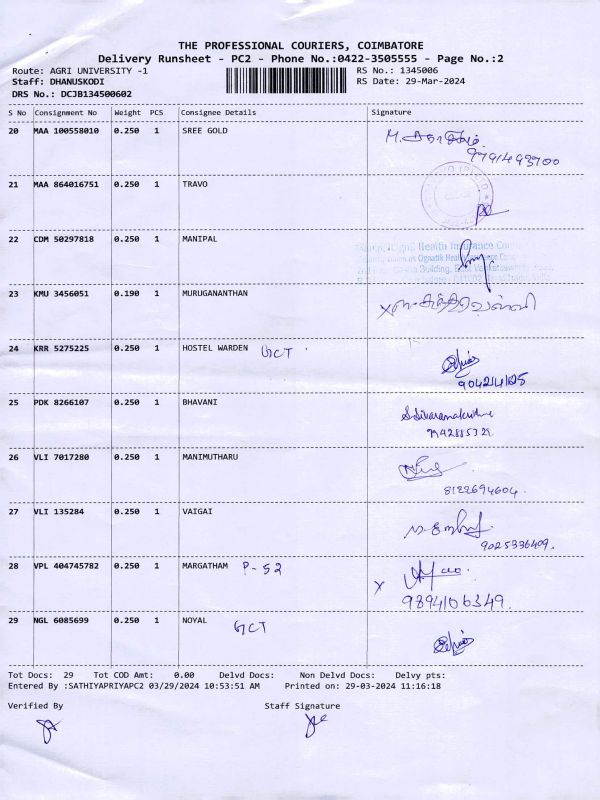 THE PROFESSIONAL COURIERS, COIMBATORE
Delivery Runsheet - PC2 - Phone No.:0422-3505555 - Page No.:2
Route: AGRI UNIVERSITY -1 RS No.: 1345006
Staff: DHANUSKODI RS Date: 29-Mar-2024
DRS No.: DCJB134500602
S No Consignment No Weight PCS Consignee Details Signature
20 MAA 100558010 0.250 1 SREE GOLD
9791493700
21 MAA 864016751 0.250 1 TRAVO
22 CDM 50297818 0.250 1 MANIPAL
Health Insurance
Building,
23 KMU 3456051 0.190 1 MURUGANANTHAN
24 KRR 5275225 0.250 1 HOSTEL WARDEN GCT
25 PDK 8266107 0.250 1 BHAVANI
S. Sivaramakrishna
26 VLI 7017280 0.250 1 MANIMUTHARU
8122694604.
27 VLI 135284 0.250 1 VAIGAI
9025336409.
28 VPL 404745782 0.250 1 MARGATHAM P-52
X
9894106349.
29 NGL 6085699 0.250 1 NOYAL GCT
Tot Docs: 29 Tot COD Amt: 0.00 Delvd Docs: Non Delvd Docs: Delvy pts:
Entered By :SATHIYAPRIYAPC2 03/29/2024 10:53:51 AM Printed on: 29-03-2024 11:16:18
Verified By Staff Signature